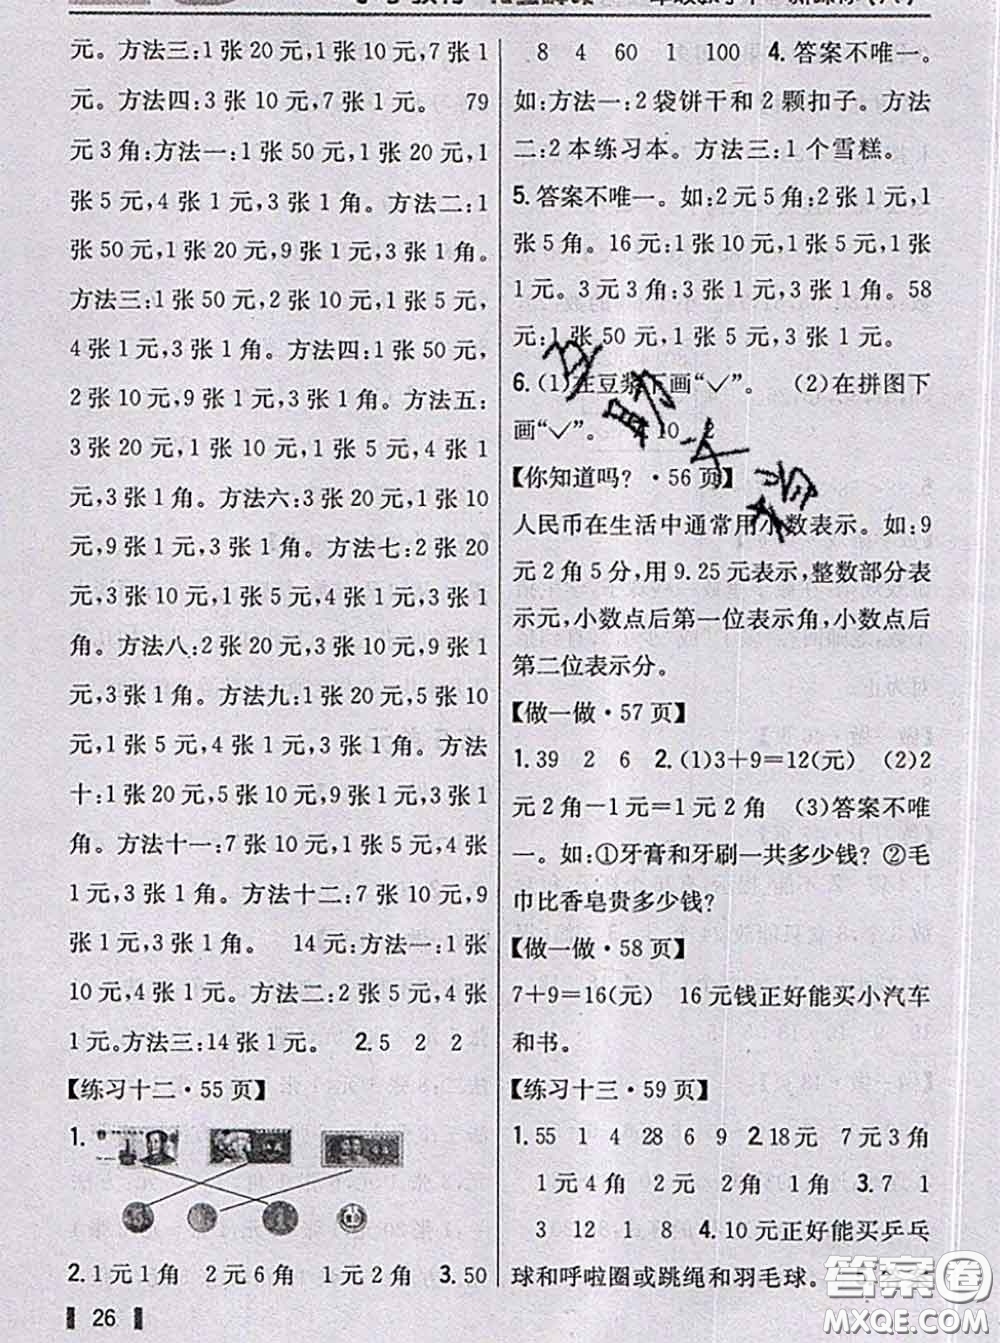 元。方法三:1 张 20 元,1 张 10 元,7 张 1
元。方法四:3 张 10 元,7 张 1 元。 79
元 3 角:方法一:1 张 50 元,1 张 20 元,1
张 5 元,4 张 1 元,3 张 1 角。方法二:1
张 50 元,1 张 20 元,9 张 1 元,3 张 1 角。
方法三:1 张 50 元,2 张 10 元,1 张 5 元,
4 张 1 元,3 张 1 角。方法四:1 张 50 元,
2 张 10 元,9 张 1 元,3 张 1 角。方法五:
3 张 20 元,1 张 10 元,1 张 5 元,4 张 1
元,3 张 1 角。方法六:3 张 20 元,1 张 10
元,9 张 1 元,3 张 1 角。方法七:2 张 20
元,3 张 10 元,1 张 5 元,4 张 1 元,3 张 1
角。方法八:2 张 20 元,3 张 10 元,9 张 1
元,3 张 1 角。方法九:1 张 20 元,5 张 10
元,1 张 5 元,4 张 1 元,3 张 1 角。方法
十:1 张 20 元,5 张 10 元,9 张 1 元,3 张 1
角。方法十一:7 张 10 元,1 张 5 元,4 张
1 元,3 张 1 角。方法十二:7 张 10 元,9
张 1 元,3 张 1 角。 14 元:方法一:1 张
10 元,4 张 1 元。方法二:2 张 5 元,4 张
1 元。方法三:14 张 1 元。 2.5 2 2
【练习十二·55 页】
1.
2.1 元 1 角 2 元 6 角 1 元 2 角 3.50
26
8 4 60 1 100 4.答案不唯一。
如:方法一:2 袋饼干和 2 颗扣子。方法
二:2 本练习本。方法三:1 个雪糕。
5.答案不唯一。如:2 元 5 角:2 张 1 元,1
张 5 角。16 元:1 张 10 元,1 张 5 元,1
张 1 元。3 元 3 角:3 张 1 元,3 张 1 角。58
元:1 张 50 元,1 张 5 元,3 张 1 元。
6.(1)在豆浆下画“✓”。 (2)在拼图下
画“✓”。 10 2
【你知道吗?·56 页】
人民币在生活中通常用小数表示。如:9
元 2 角 5 分,用 9.25 元表示,整数部分表
示元,小数点后第一位表示角,小数点后
第二位表示分。
【做一做·57 页】
1.39 2 6 2.(1)3+9=12(元) (2)2
元 2 角-1 元=1 元 2 角 (3)答案不唯
一。如:①牙膏和牙刷一共多少钱?②毛
巾比香皂贵多少钱?
【做一做·58 页】
7+9=16(元) 16 元钱正好能买小汽车
和书。
【练习十三·59 页】
1.55 1 4 28 6 9 2.18 元 7 元 3 角
1 元 4 角 2 元 2 元 2 角 3.7 1
3 12 1 8 4.10 元正好能买乒乓
球和呼啦圈或跳绳和羽毛球。
答案圈
MXQE.COM